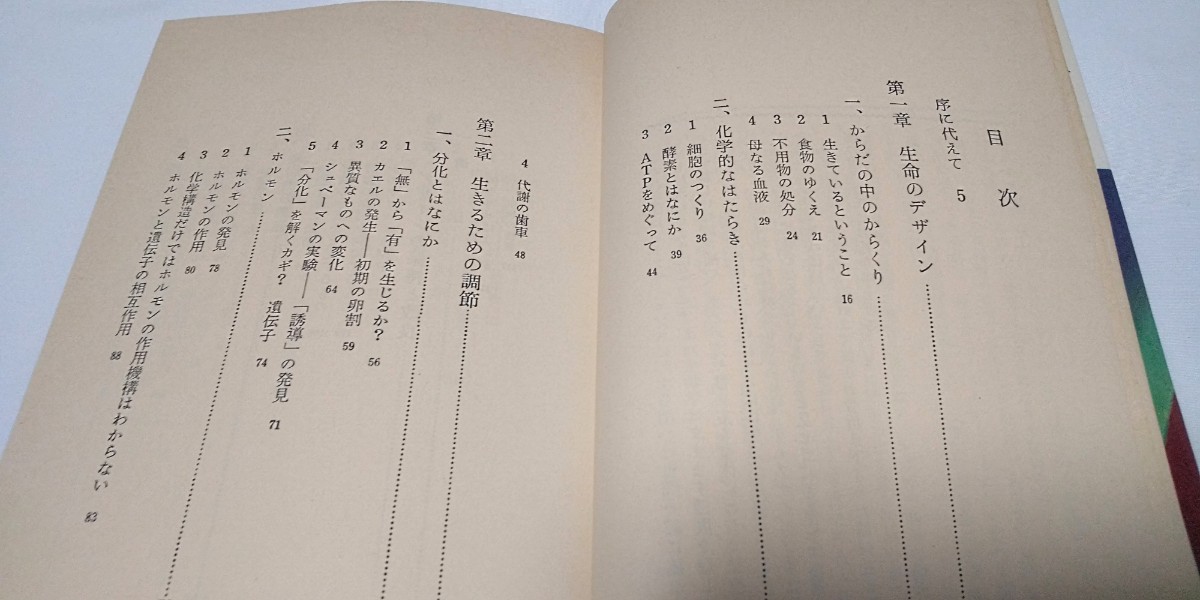 目次
序に代えて 5
第一章 生命のデザイン
一、からだの中のからくり
1 生きているということ 16
2 食物のゆくえ 21
3 不用物の処分 24
4 母なる血液 29
二、化学的なはたらき
1 細胞のつくり 36
2 酵素とはなにか 39
3 ATPをめぐって 44
4 代謝の歯車 48
第二章 生きるための調節
一、分化とはなにか
1 「無」から「有」を生じるか? 56
2 カエルの発生——初期の卵割 59
3 異質なものへの変化 64
4 シュペーマンの実験——「誘導」の発見 71
5 「分化」を解くカギ? 遺伝子 74
二、ホルモン
1 ホルモンの発見 78
2 ホルモンの作用 80
3 化学構造だけではホルモンの作用機構はわからない 83
4 ホルモンと遺伝子の相互作用 88